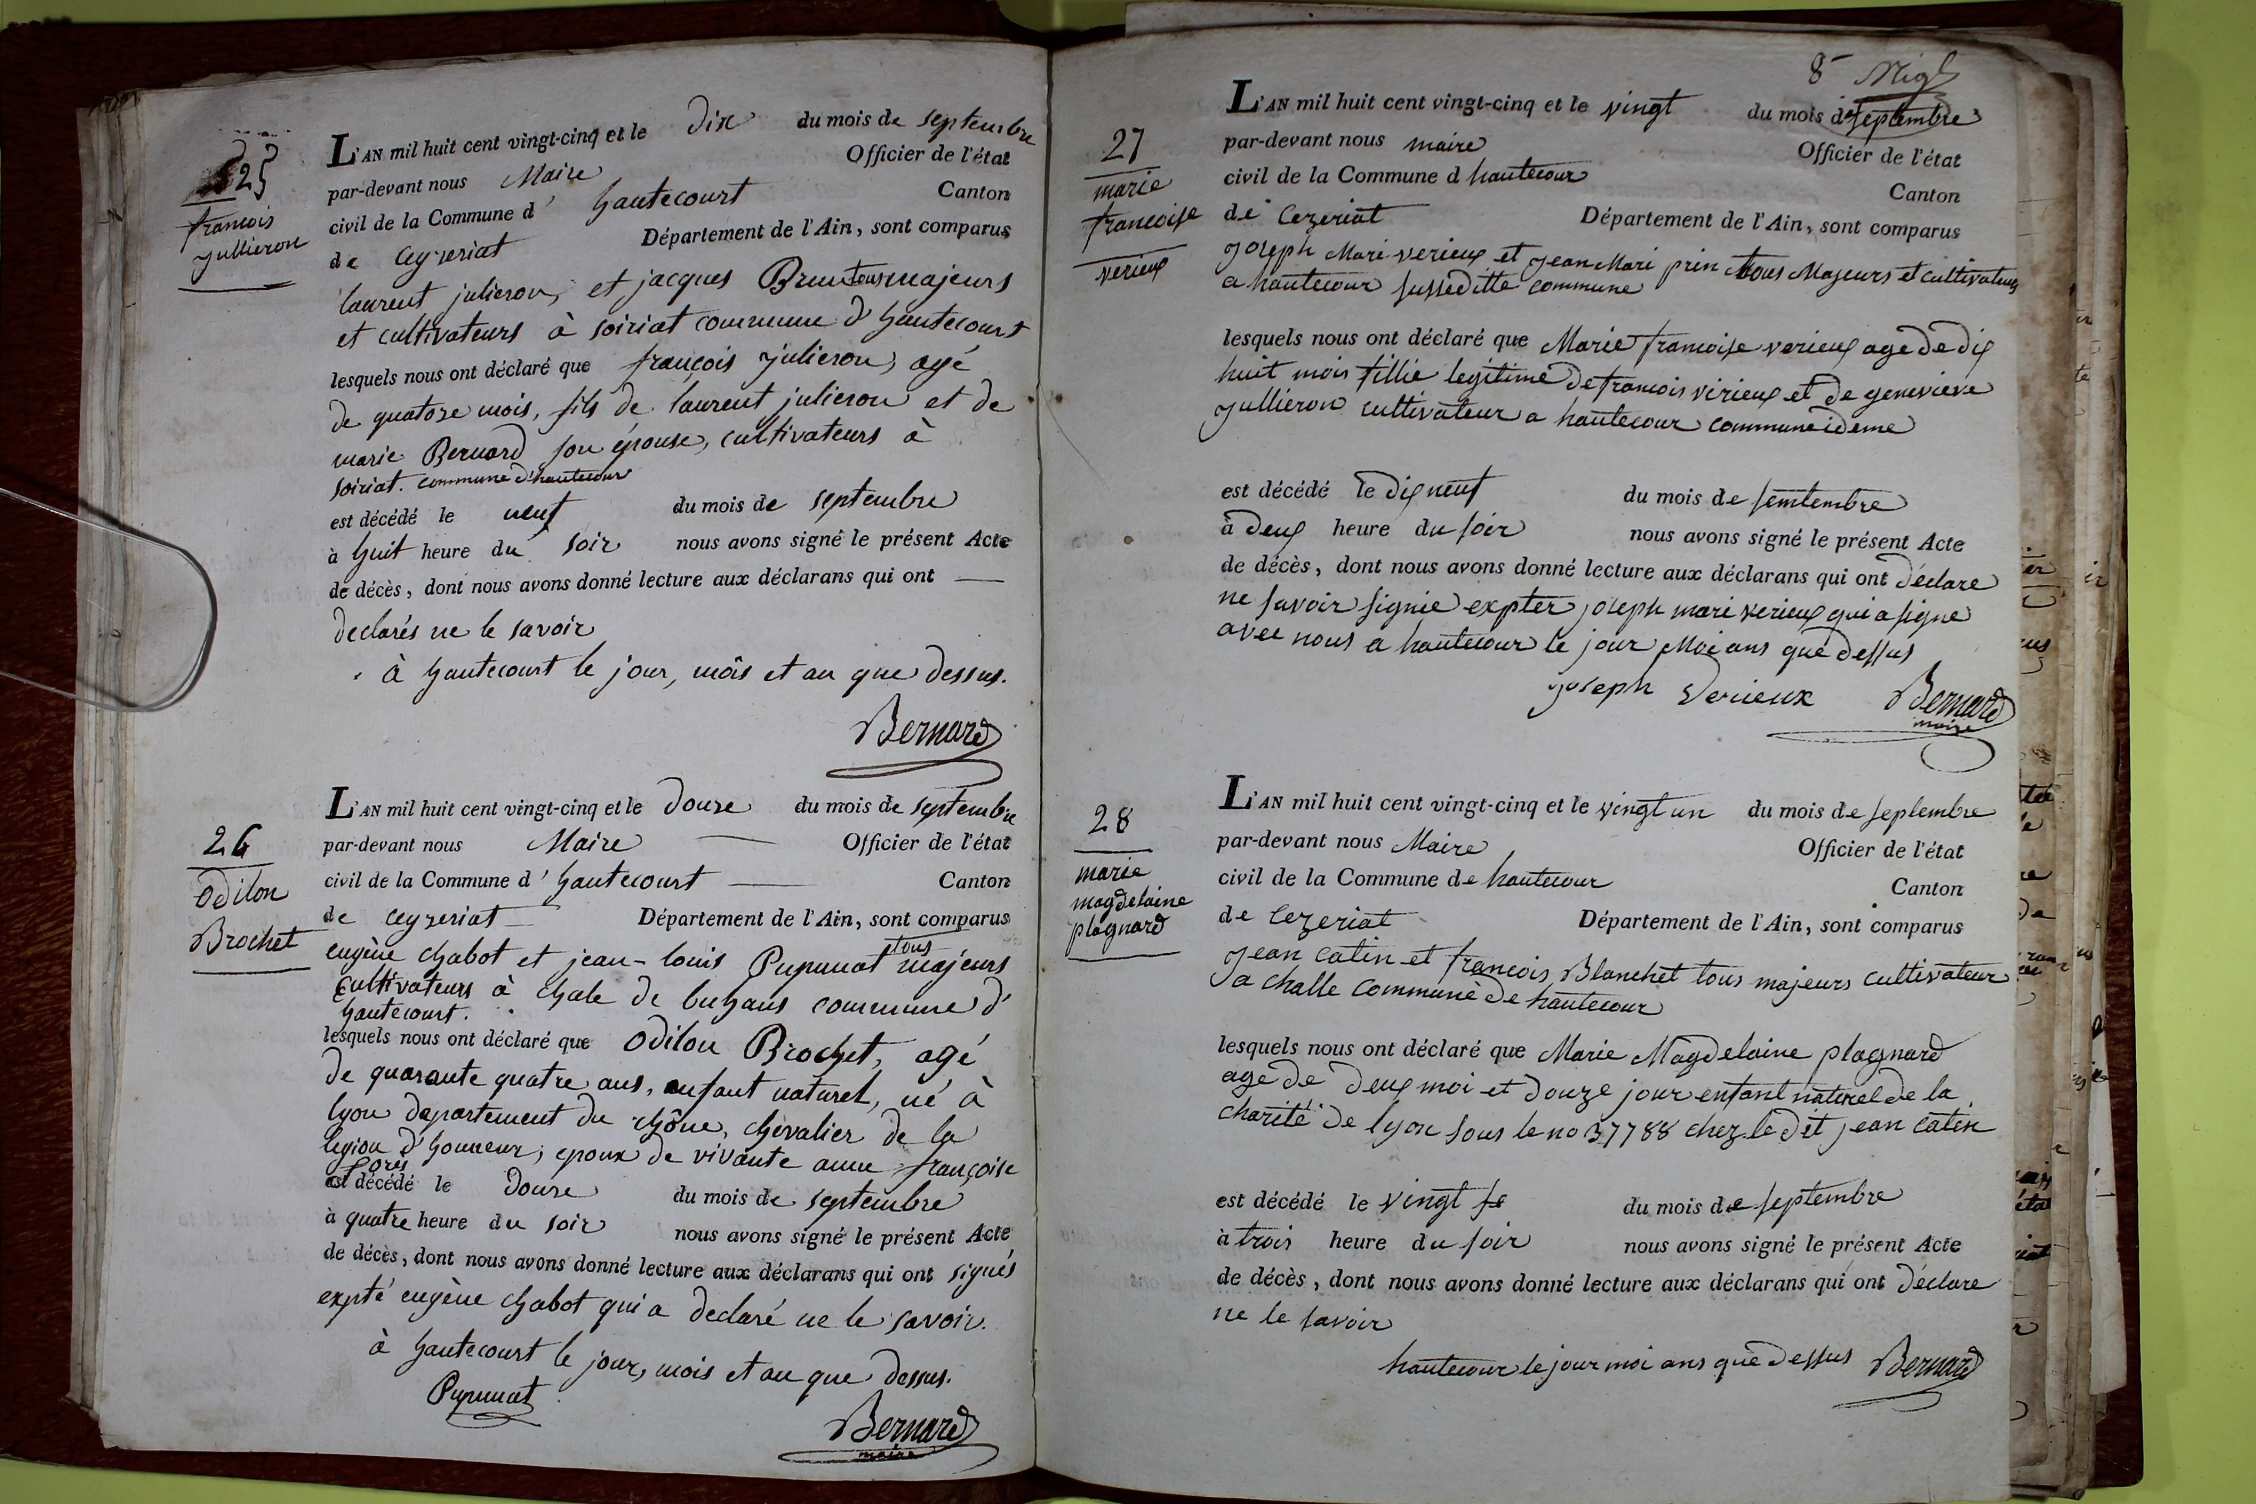 25
francois
jullieron
L'AN mil huit cent vingt-cinq et le dix du mois de septembre
par-devant nous Maire Officier de l'état
civil de la Commune d' hautecourt Canton
de Ceyzeriat Département de l'Ain, sont comparus
laurent julieron, et jacques Brun tous majeurs
et cultivateurs à soiriat commune d'hautecourt
lesquels nous ont déclaré que françois julieron, agé
de quatorze mois, fils de laurent julieron et de
marie Bernard son épouse, cultivateurs à
soiriat. commune d'hautecour
est décédé le neuf du mois de septembre
à huit heure du soir nous avons signé le présent Acte
de décès, dont nous avons donné lecture aux déclarans qui ont
declarés ne le savoir
à hautecourt le jour, mois et an que dessus.
Bernard
26
Odilon
Brochet
L'AN mil huit cent vingt-cinq et le douze du mois de septembre
par-devant nous Maire Officier de l'état
civil de la Commune d' hautecourt Canton
de ceyzeriat Département de l'Ain, sont comparus
eugène chabot et jean-louis Pupunat tous majeurs
cultivateurs à chale de buhans commune d'
hautecourt.
lesquels nous ont déclaré que Odilon Brochet, agé
de quarante quatre ans, enfant naturel, né à
lyon departement du rhône, chevalier de la
legion d'honneur, epoux de vivante anne françoise
Pores
est décédé le douze du mois de septembre
à quatre heure du soir nous avons signé le présent Acte
de décès, dont nous avons donné lecture aux déclarans qui ont signés
expté eugène chabot qui a declaré ne le savoir.
à hautecourt le jour, mois et an que dessus.
Pupunat
Bernard
maire
8
27
marie
francoise
verieux
L'AN mil huit cent vingt-cinq et le vingt du mois de septembre
par-devant nous maire Officier de l'état
civil de la Commune d hautecour Canton
de Cezeriat Département de l'Ain, sont comparus
joseph Mari verieux et jean Mari prin tous Majeurs et cultivateurs
a hautecour susseditte commune
lesquels nous ont déclaré que Marie francoise verieux age de dix
huit mois fillie legitime de francois virieux et de genevieve
jullieron cultivateur a hautecour commune ideme
est décédé le dix neuf du mois de semtembre
à deux heure du soir nous avons signé le présent Acte
de décès, dont nous avons donné lecture aux déclarans qui ont déclare
ne savoir signie expter joseph mari verieux qui a signe
avec nous a hautecour le jour Moi ans que dessus
joseph Verieux Bernard
maire
28
marie
magdelaine
plagnard
L'AN mil huit cent vingt-cinq et le vingt un du mois de septembre
par-devant nous Maire Officier de l'état
civil de la Commune de hautecour Canton
de Cezeriat Département de l'Ain, sont comparus
jean catin et francois Blanchet tous majeurs cultivateur
a challe commune de hautecour
lesquels nous ont déclaré que Marie Magdelaine plagnard
age de deux moi et douze jour enfant naturel de la
charité de lyon sous le no 37788 chez le dit jean catin
est décédé le vingt du mois de septembre
à trois heure du soir nous avons signé le présent Acte
de décès, dont nous avons donné lecture aux déclarans qui ont déclare
ne le savoir
hautecour le jour moi ans que dessus Bernard